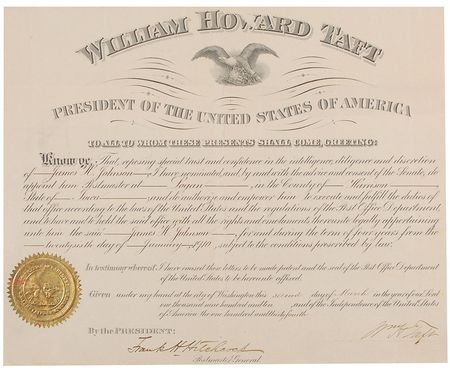 WILLIAM HOWARD TAFT
PRESIDENT OF THE UNITED STATES OF AMERICA
TO ALL TO WHOM THESE PRESENTS SHALL COME, GREETING:
Know ye, That, reposing special trust and confidence in the intelligence, diligence and discretion
of James W Johnson, I have nominated, and, by and with the advice and consent of the Senate, do
appoint him Postmaster at Logan, in the County of Harrison
State of Iowa, and do authorize and empower him to execute and fulfill the duties of
that office according to the laws of the United States and the regulations of the Post Office Department,
and to have and to hold the said office, with all the rights and emoluments thereunto legally appertaining
unto him the said James W Johnson, for and during the term of four years from the
twentysixth day of January, 1910, subject to the conditions prescribed by law.
In testimony whereof I have caused these letters to be made patent and the seal of the Post Office Department
of the United States to be hereunto affixed.
Given under my hand at the city of Washington this second day of March in the year of our Lord
one thousand nine hundred and ten, and of the Independence of the United States
of America the one hundred and thirtyfourth.
By the PRESIDENT:
Wm H Taft
Frank H Hitchcock
Postmaster General.